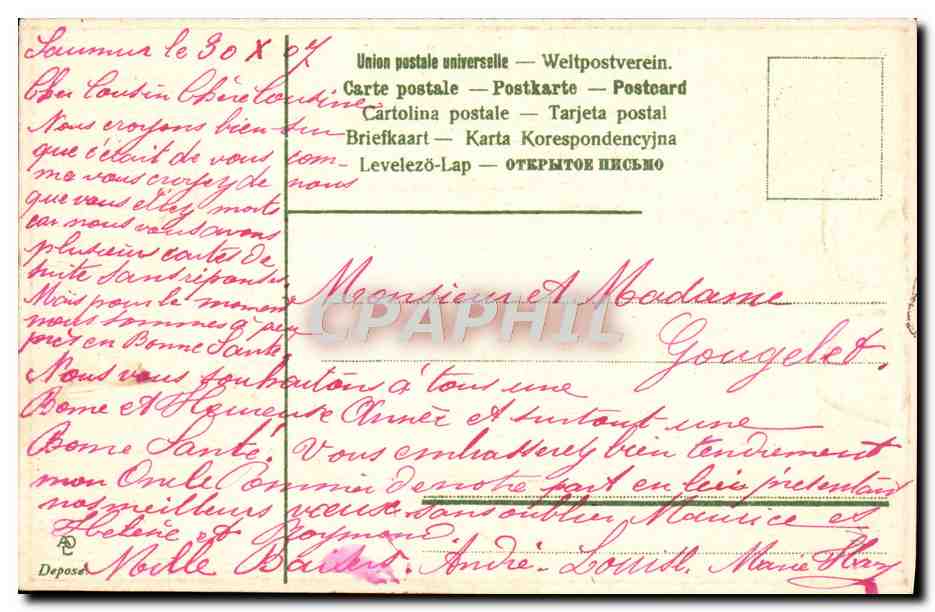 Saumur le 30 X 07
Cher Cousin Chère Cousine
Nous croyons bien sur
que c'était de vous com
me vous croyez de nous
que vous étiez morts
car nous vous avons
plusieurs cartes de
suite sans réponse.
Mais pour le moment
nous sommes à peu
près en Bonne Santé.
Nous vous souhaitons à tous une
Bonne et Heureuse Année et surtout une
Bonne Santé. Vous embrasserez bien tendrement
mon Oncle Pommier de notre part en lui présentant
nos meilleurs vœux sans oublier Maurice et
Helène et Raymond.
Mille Baisers. André. Louise. Marie
Union postale universelle — Weltpostverein.
Carte postale — Postkarte — Postcard
Cartolina postale — Tarjeta postal
Briefkaart — Karta Korespondencyjna
Levelezö-Lap — ОТКРЫТОЕ ПИСЬМО
Monsieur et Madame
Gougelet.
CPAPHIL
Deposé